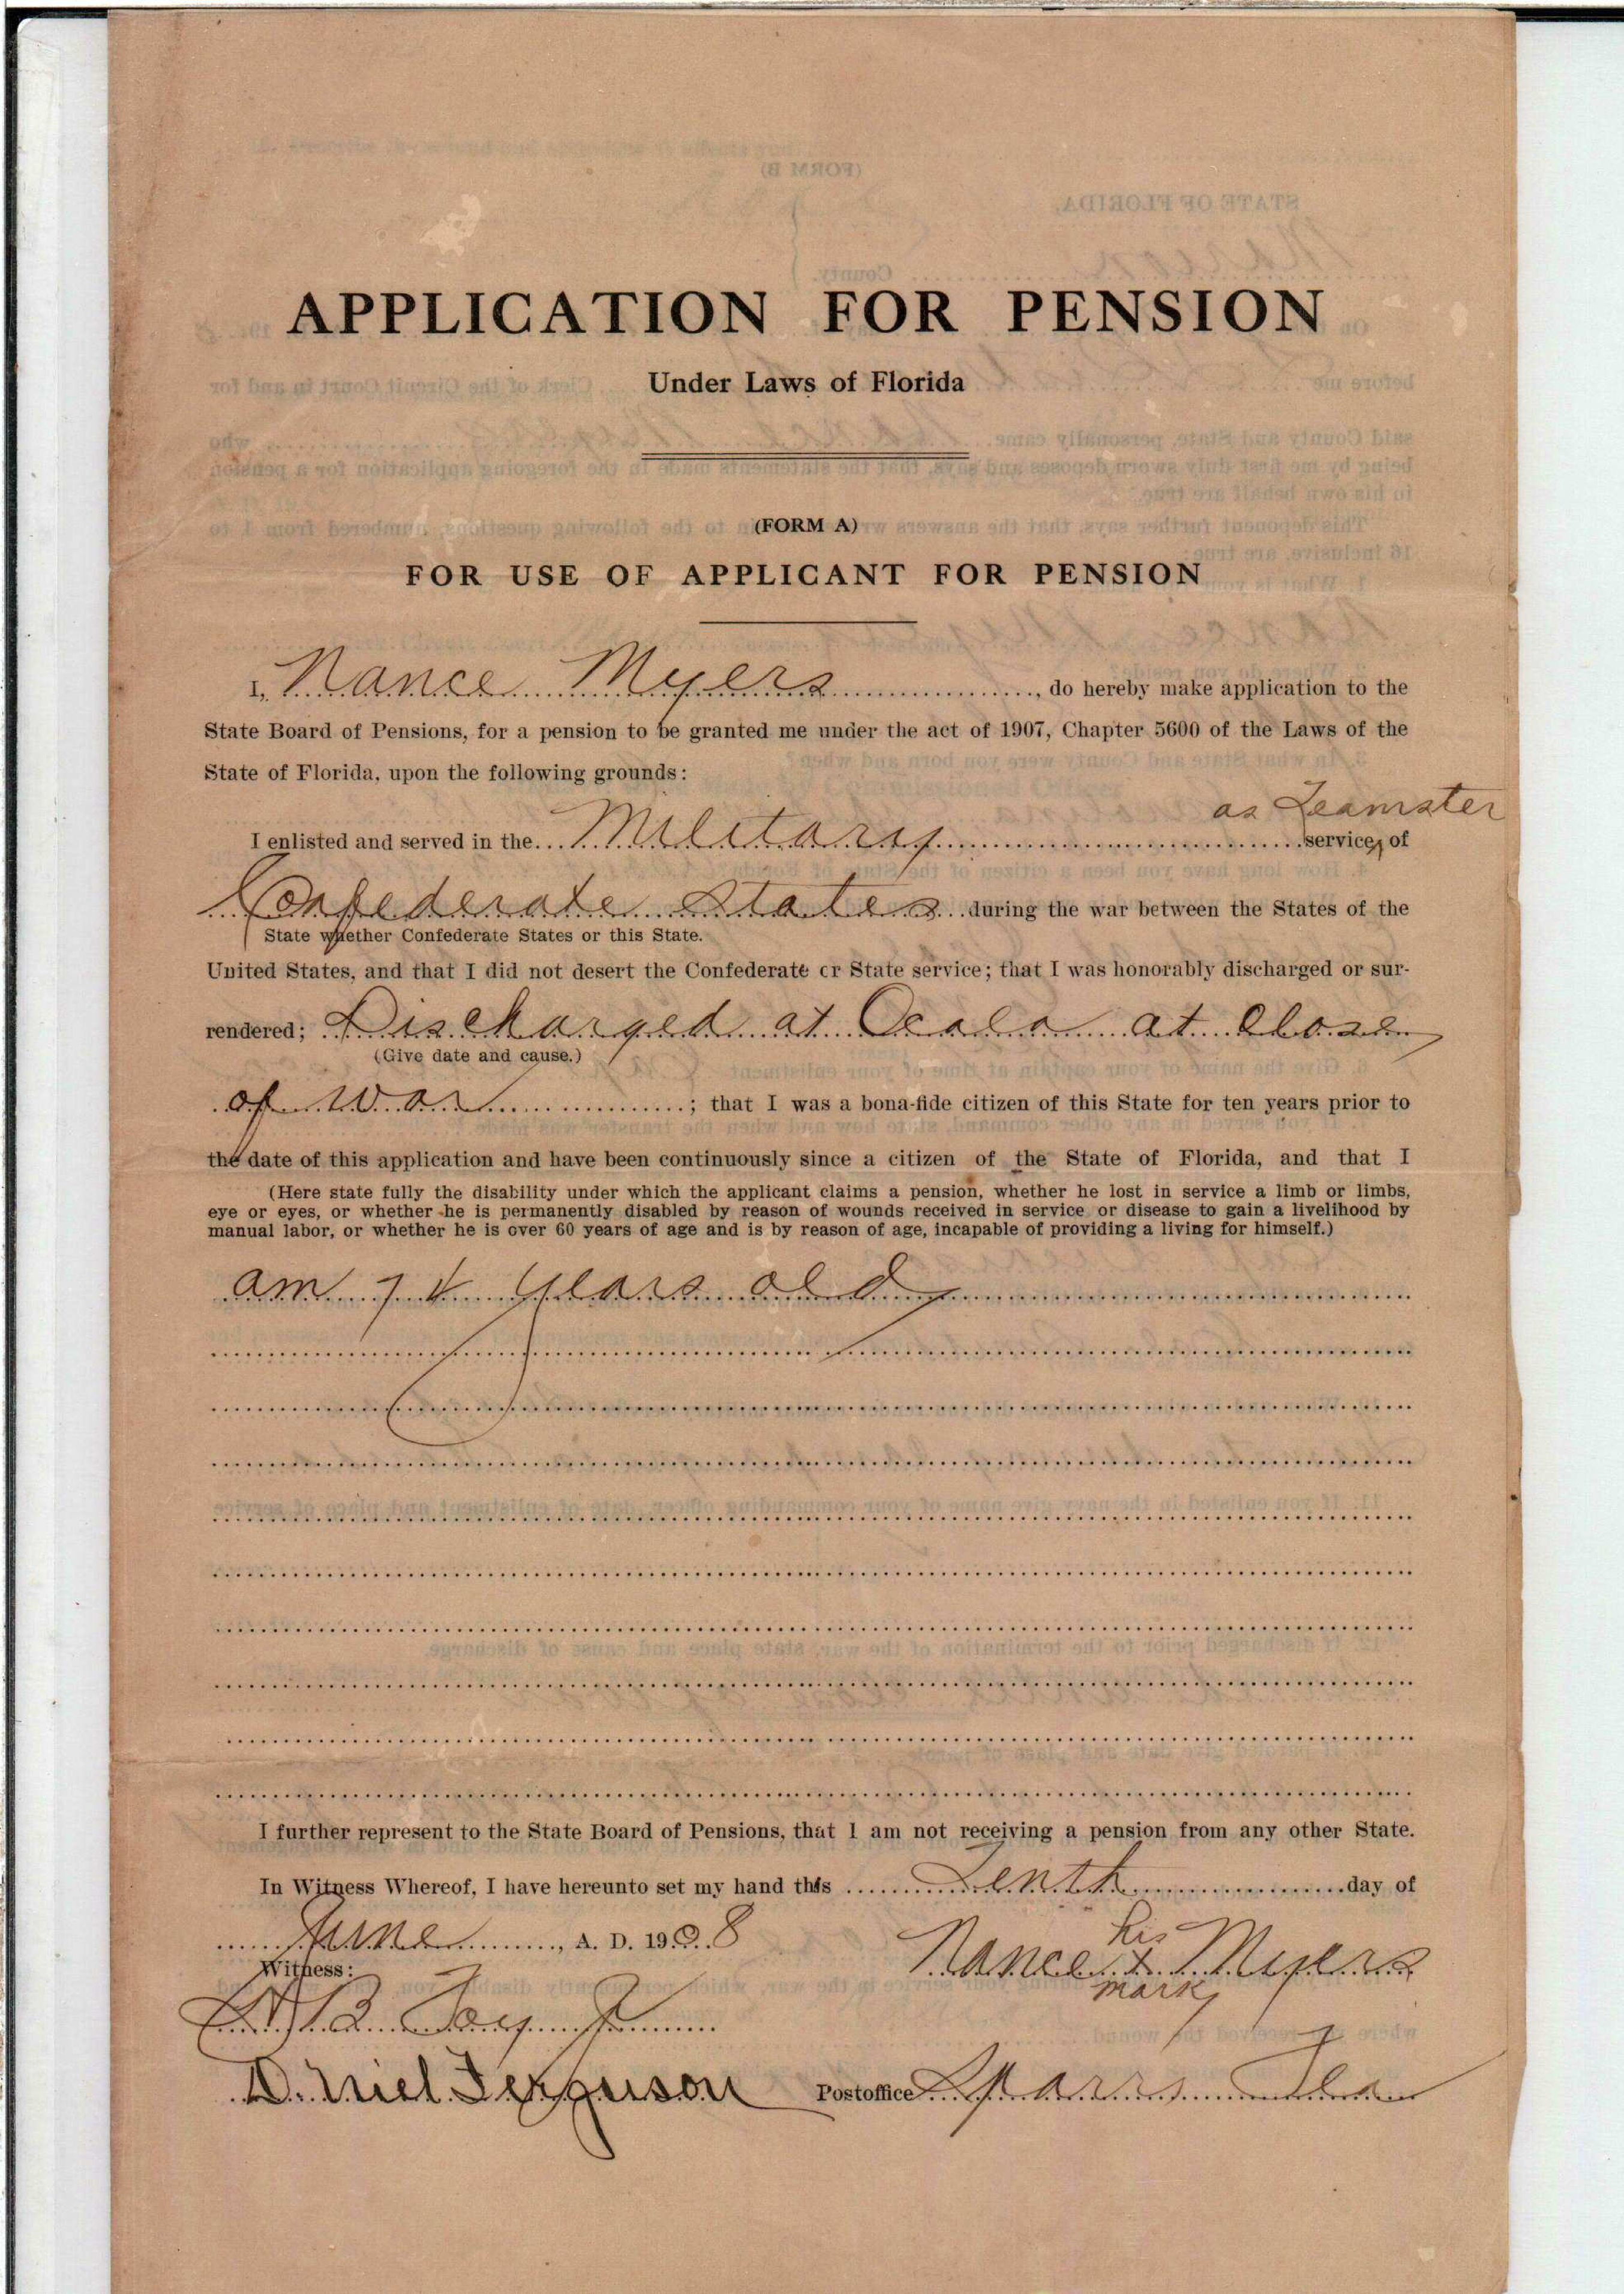 APPLICATION FOR PENSION
Under Laws of Florida
(FORM A)
FOR USE OF APPLICANT FOR PENSION
I, Nance Myers, do hereby make application to the
State Board of Pensions, for a pension to be granted me under the act of 1907, Chapter 5600 of the Laws of the
State of Florida, upon the following grounds:
as Teamster
I enlisted and served in the Military service, of
Confederate States during the war between the States of the
State whether Confederate States or this State.
United States, and that I did not desert the Confederate or State service; that I was honorably discharged or sur-
rendered; Discharged at Ocala at close
(Give date and cause.)
of war; that I was a bona-fide citizen of this State for ten years prior to
the date of this application and have been continuously since a citizen of the State of Florida, and that I
(Here state fully the disability under which the applicant claims a pension, whether he lost in service a limb or limbs,
eye or eyes, or whether he is permanently disabled by reason of wounds received in service or disease to gain a livelihood by
manual labor, or whether he is over 60 years of age and is by reason of age, incapable of providing a living for himself.)
am 74 years old
I further represent to the State Board of Pensions, that I am not receiving a pension from any other State.
In Witness Whereof, I have hereunto set my hand this Tenth day of
June, A. D. 1908
his
Nance x Myers
mark
Witness:
D. Niel Ferguson
Postoffice Sparrs Fla